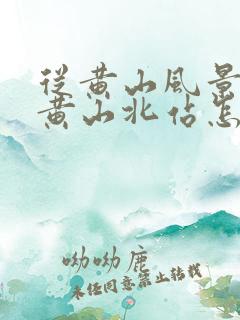 從黄山風景
黄山北佔怎
呦呦鹿
未经同意禁止转载